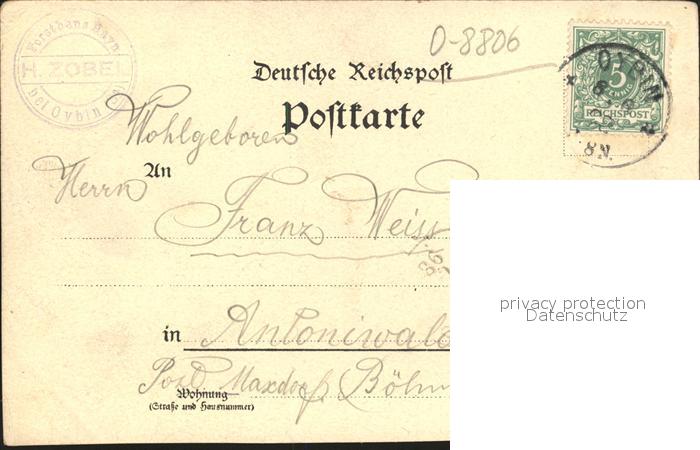 Forsthaus Hayn
H. ZOBEL
bei Oybin
O-8806
Deutsche Reichspost
Postkarte
5
PFENNIG
REICHSPOST
OYBIN
8 N.
Wohlgeboren
An
Herrn
Franz Weiss
in Antoniwald
Post Maxdorf Böhm
Wohnung
(Straße und Hausnummer)
privacy protection
Datenschutz